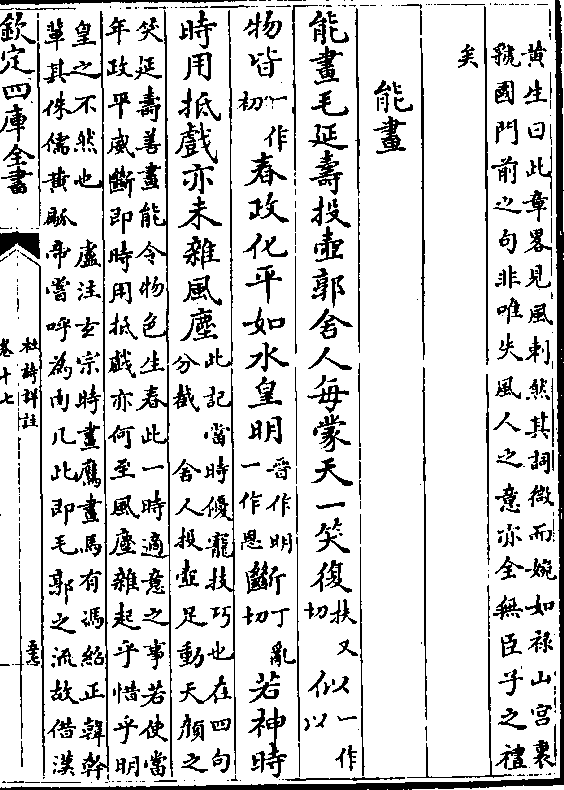 黄生曰此章畧見風刺然其詞微而婉如禄山宫裏
虢國門前之句非唯失風人之意亦全無臣子之禮
矣
能畫
能畫毛延壽投壺郭舍人每蒙天一笑復扶又切似一作以
物皆一作初春政化平如水皇明晉作明一作恩斷丁亂切若神時
時用抵戲亦未雜風塵此記當時優寵技巧也在四句分截 舍人投壺足動天顔之
笑延壽善畫能令物色生春此一時適意之事若使當
年政平威斷即時用抵戲亦何至風塵雜起乎惜乎明
皇之不然也 盧注玄宗時畫鷹畫馬有馮紹正韓幹
輩其侏儒黄䫌帝嘗呼為肉几此即毛郭之流故借漢
欽定四庫全書
杜詩詳註
卷十七